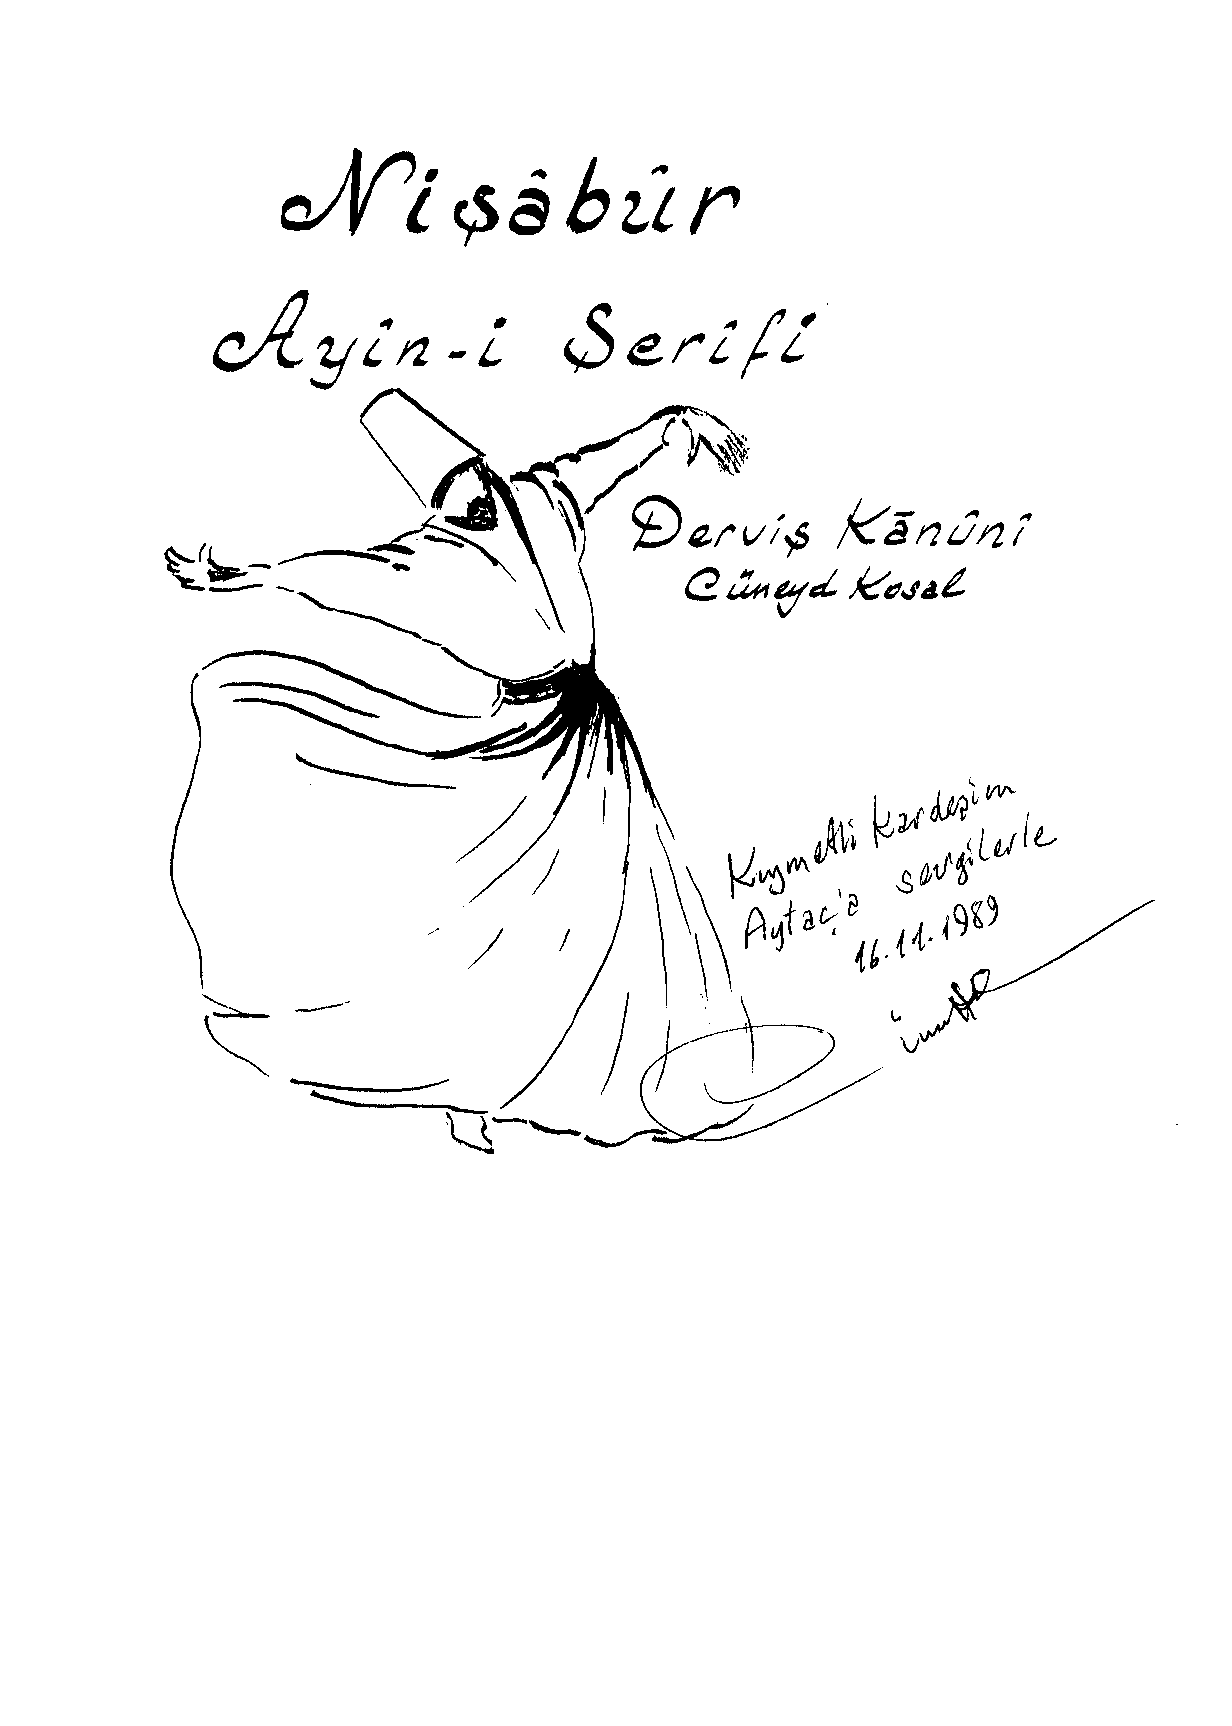 Nişâbûr
Ayîn-i Şerîfi
Derviş Kānûnî
Cüneyd Kosal
Kıymetli Kardeşim
Aytaç'a sevgilerle
16.11.1989